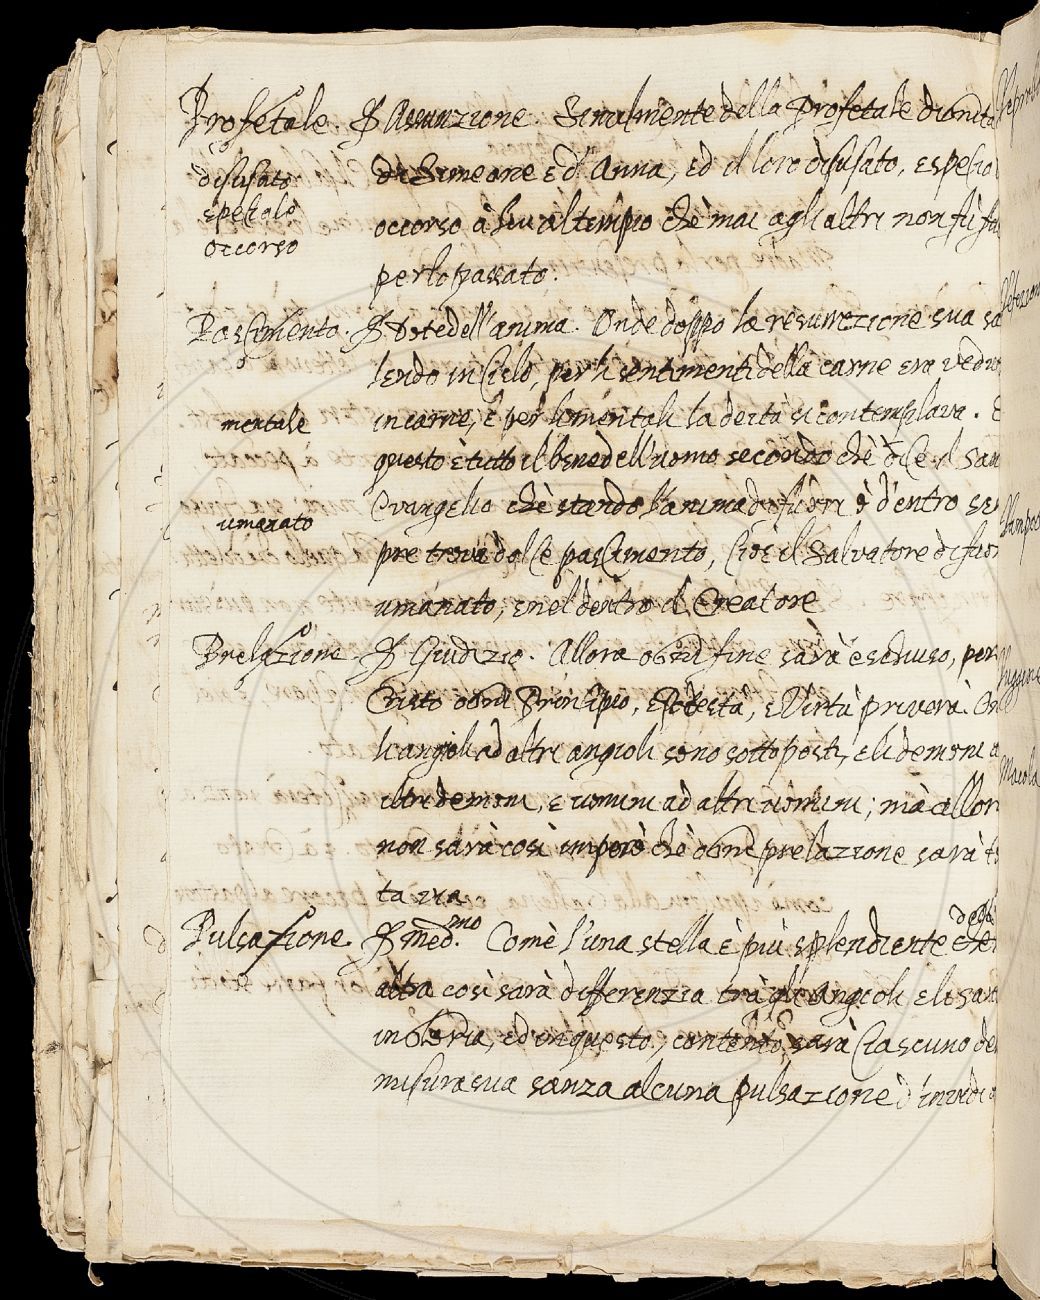 Profetale. P. Assunzione. Similmente della Profetale dignita
disusato
di Simeone e d'Anna, ed il loro disusato, e spesia
spesiale
occorso
occorso à lui al tempio chè mai agli altri non fù fa
per lo passato.
Pascimento. P. Dote dell'anima. Onde doppo la resurrezione sua sa
lendo in Cielo, per li sentimenti della carne era vedu
mentale
in carne, è per li mentali la deità si contemplava. E
questo è tutto il bene dell'uomo secondo chè dice il San
Evangelio chè stando l'anima di fuori ò d'entro se
umanato
pre trova dolce pascimento, Cioè il Salvatore di fuor
umanato, e nel dentro il Creatore
Prelazione P. Giudizio. Allora ogni fine sarà escluso, per
Cristo ogni Principio, e Podestà, e Virtù priverà. On
li angioli ad altri angioli sono sottoposti, e li demoni a
altri demoni, e uomini ad altri uomini; mà allor
non sarà così imperò chè ogni prelazione sarà
ta via
Pulsazione. P. med.mo Comè l'una stella è più splendiente dell
altra così sarà differenzia trà gli Angioli e li Sant
in Gloria, ed in questo, contento sarà Ciascuno de
misura sua sanza alcuna pulsazione d'invidi
Macola